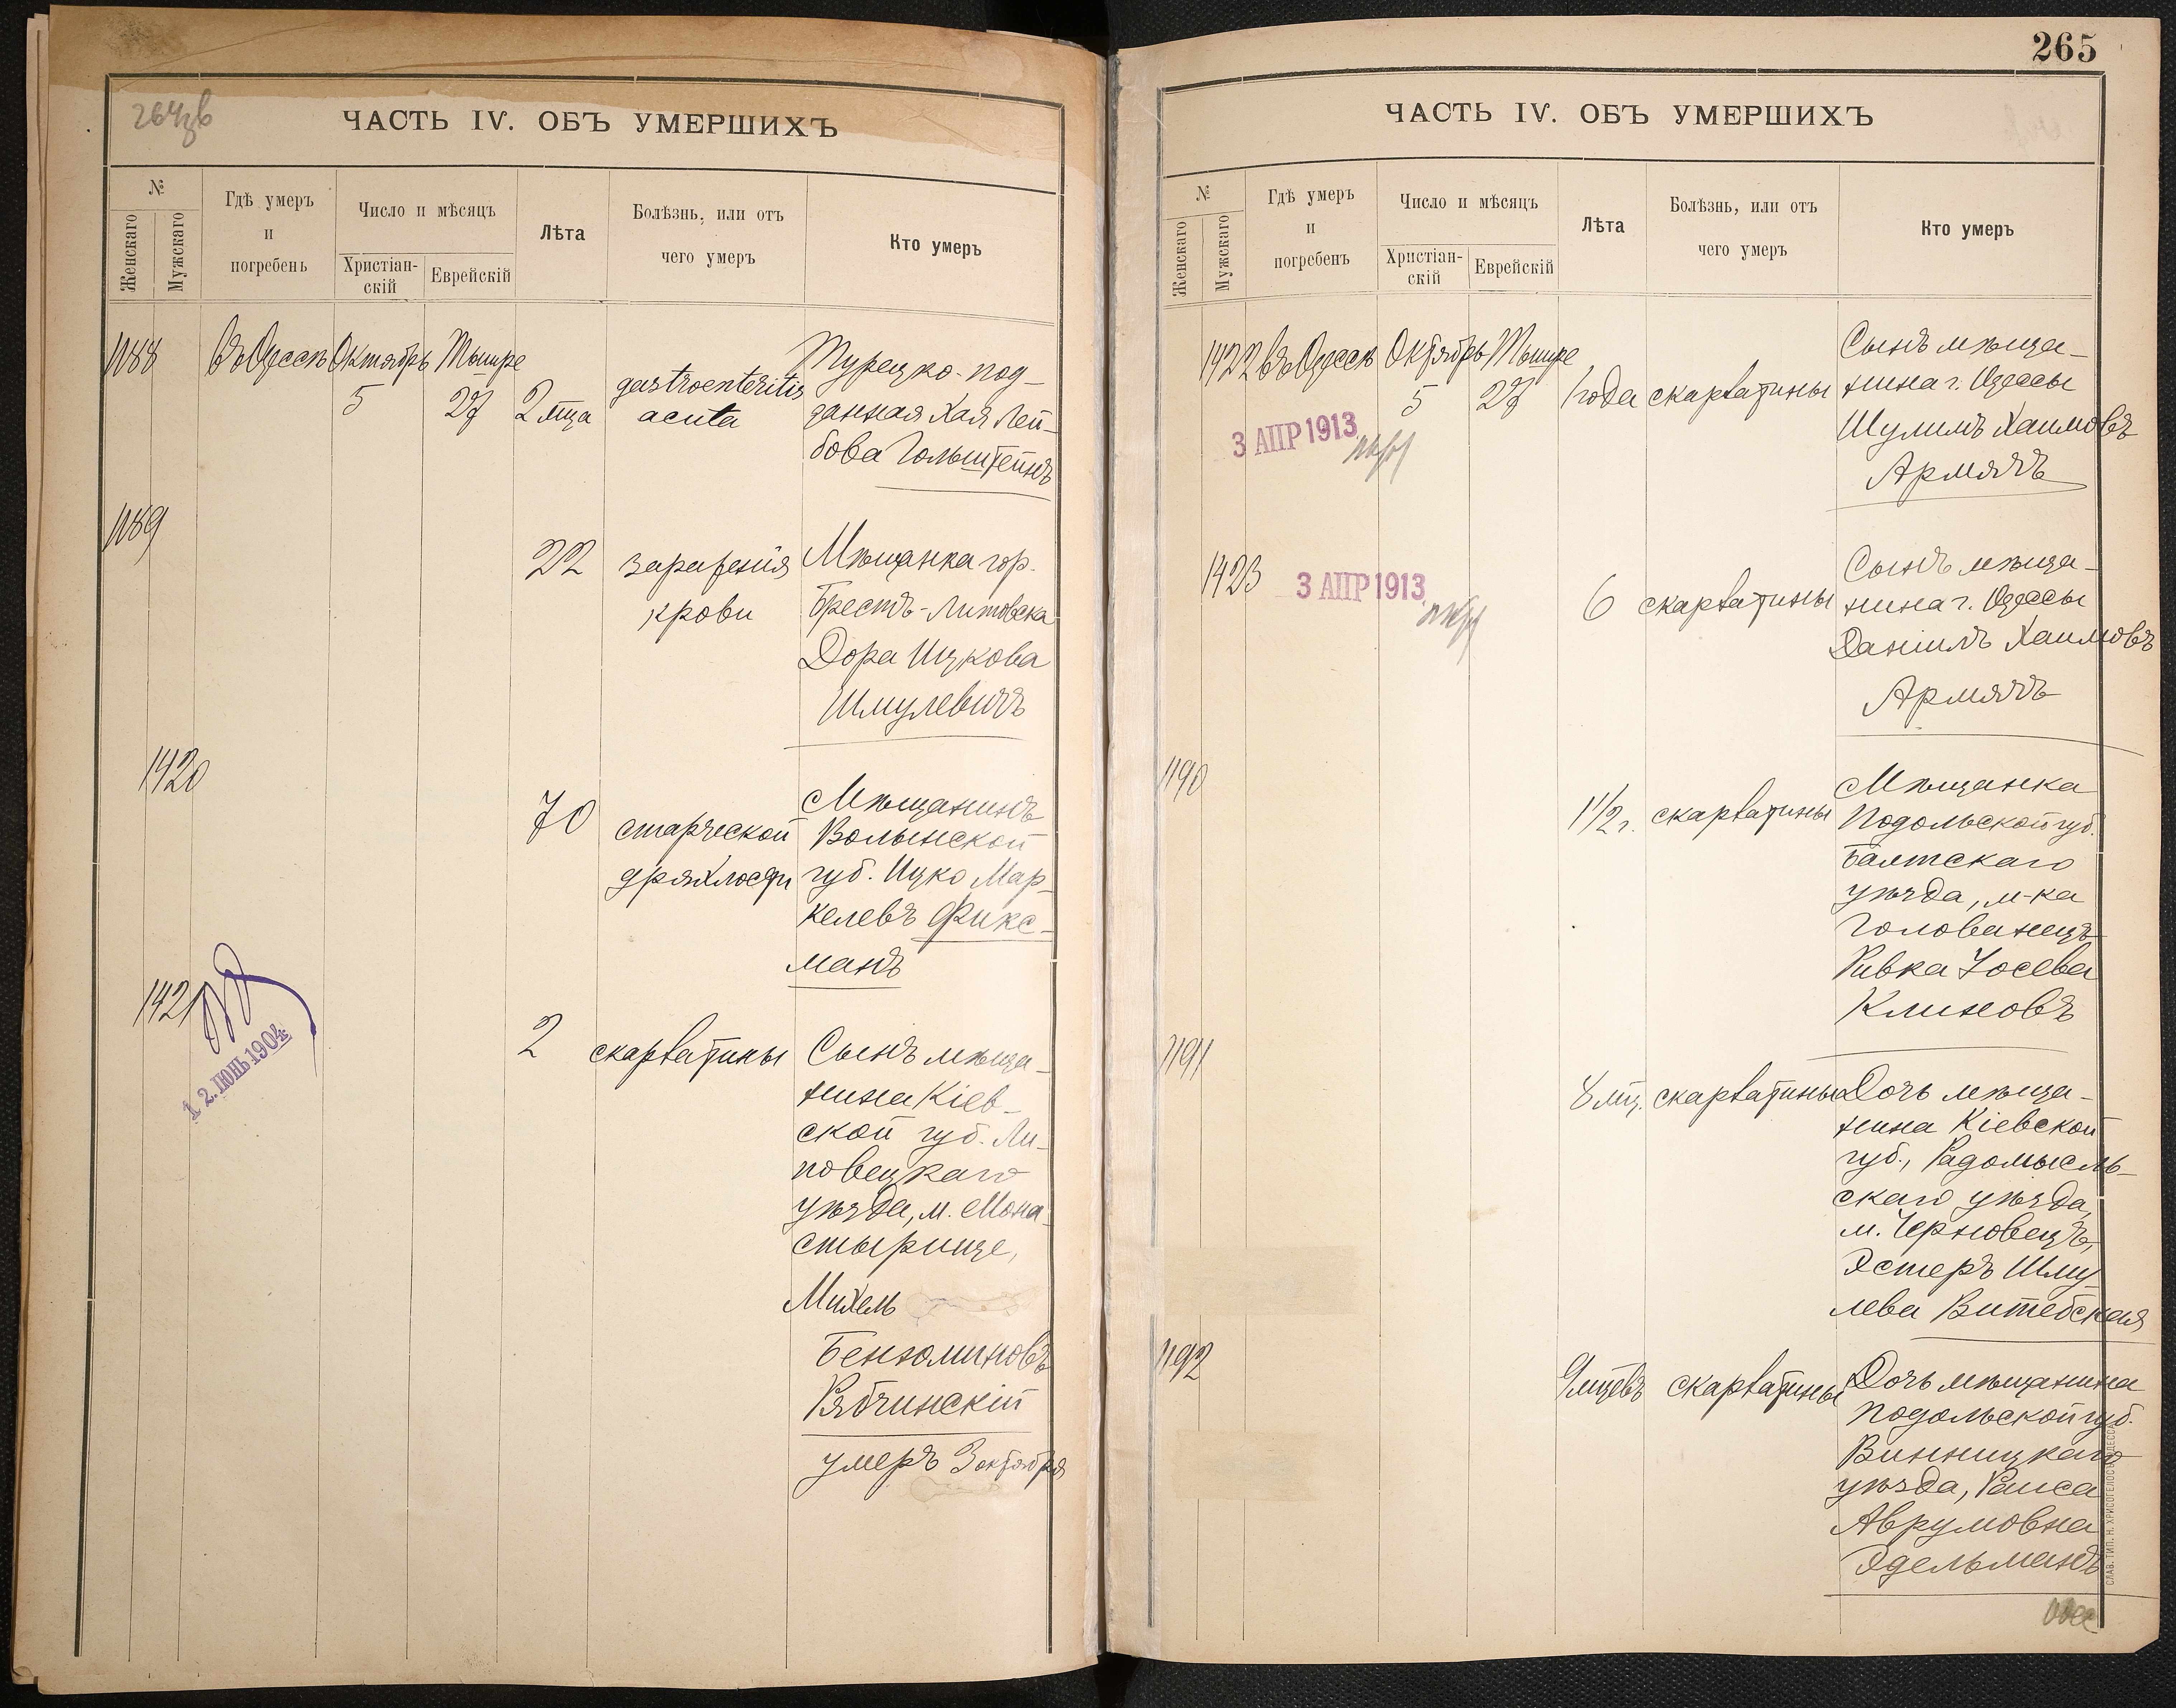 264 зв
ЧАСТЬ IV. ОБЪ УМЕРШИХЪ
№
Женскаго
Мужскаго
Гдѣ умеръ
и
погребенъ
Число и мѣсяцъ
Христіан-
скій
Еврейскій
Лѣта
Болѣзнь, или отъ
чего умеръ
Кто умеръ
1188
въ Одессѣ
Октябрь
5
Тышре
27
2 мца
gastroenteritis
acuta
Турецко-под-
данная Хая Лей-
бова Гольштейнъ
1189
22
зараженія
крови
Мѣщанка гор.
Брестъ-Литовска
Дора Ицкова
Шмулевичъ
1420
70
старческой
дряхлости
Мѣщанинъ
Волынской
губ. Ицко Мар-
келевъ Фикс-
манъ
1421
12. ІЮНЬ 1904
2
скарлатины
Сынъ мѣща-
нина Кіев-
ской губ. Ли-
повецкаго
уѣзда, м. Мона-
стырище,
Михель
Бензоминовъ
Рябчинскій
умеръ 3 октября
265
ЧАСТЬ IV. ОБЪ УМЕРШИХЪ
№
Женскаго
Мужскаго
Гдѣ умеръ
и
погребенъ
Число и мѣсяцъ
Христіан-
скій
Еврейскій
Лѣта
Болѣзнь, или отъ
чего умеръ
Кто умеръ
1422
въ Одессѣ
Октябрь
5
Тышре
27
1 года
скарлатины
Сынъ мѣща-
нина г. Одессы
Шулимъ Хаимовъ
Армячъ
3 АПР 1913
1423
3 АПР 1913
6
скарлатины
Сынъ мѣща-
нина г. Одессы
Даніилъ Хаимовъ
Армячъ
1190
1 1/2 г.
скарлатины
Мѣщанка
Подольской губ.
Балтскаго
уѣзда, м-ка
Голованецъ
Ривка Іосева
Клиновъ
1191
8 мц.
скарлатины
Дочь мѣща-
нина Кіевской
губ., Радомысль-
скаго уѣзда,
м. Черновецъ,
Эстеръ Шму-
лева Витебская
1192
9 мцевъ
скарлатины
Дочь мѣщанина
Подольской губ.
Винницкаго
уѣзда, Раиса
Аврумовна
Эдельманъ
СЛАВ. ТИП. Н. ХРИСОГЕЛОСЪ, ОДЕССА